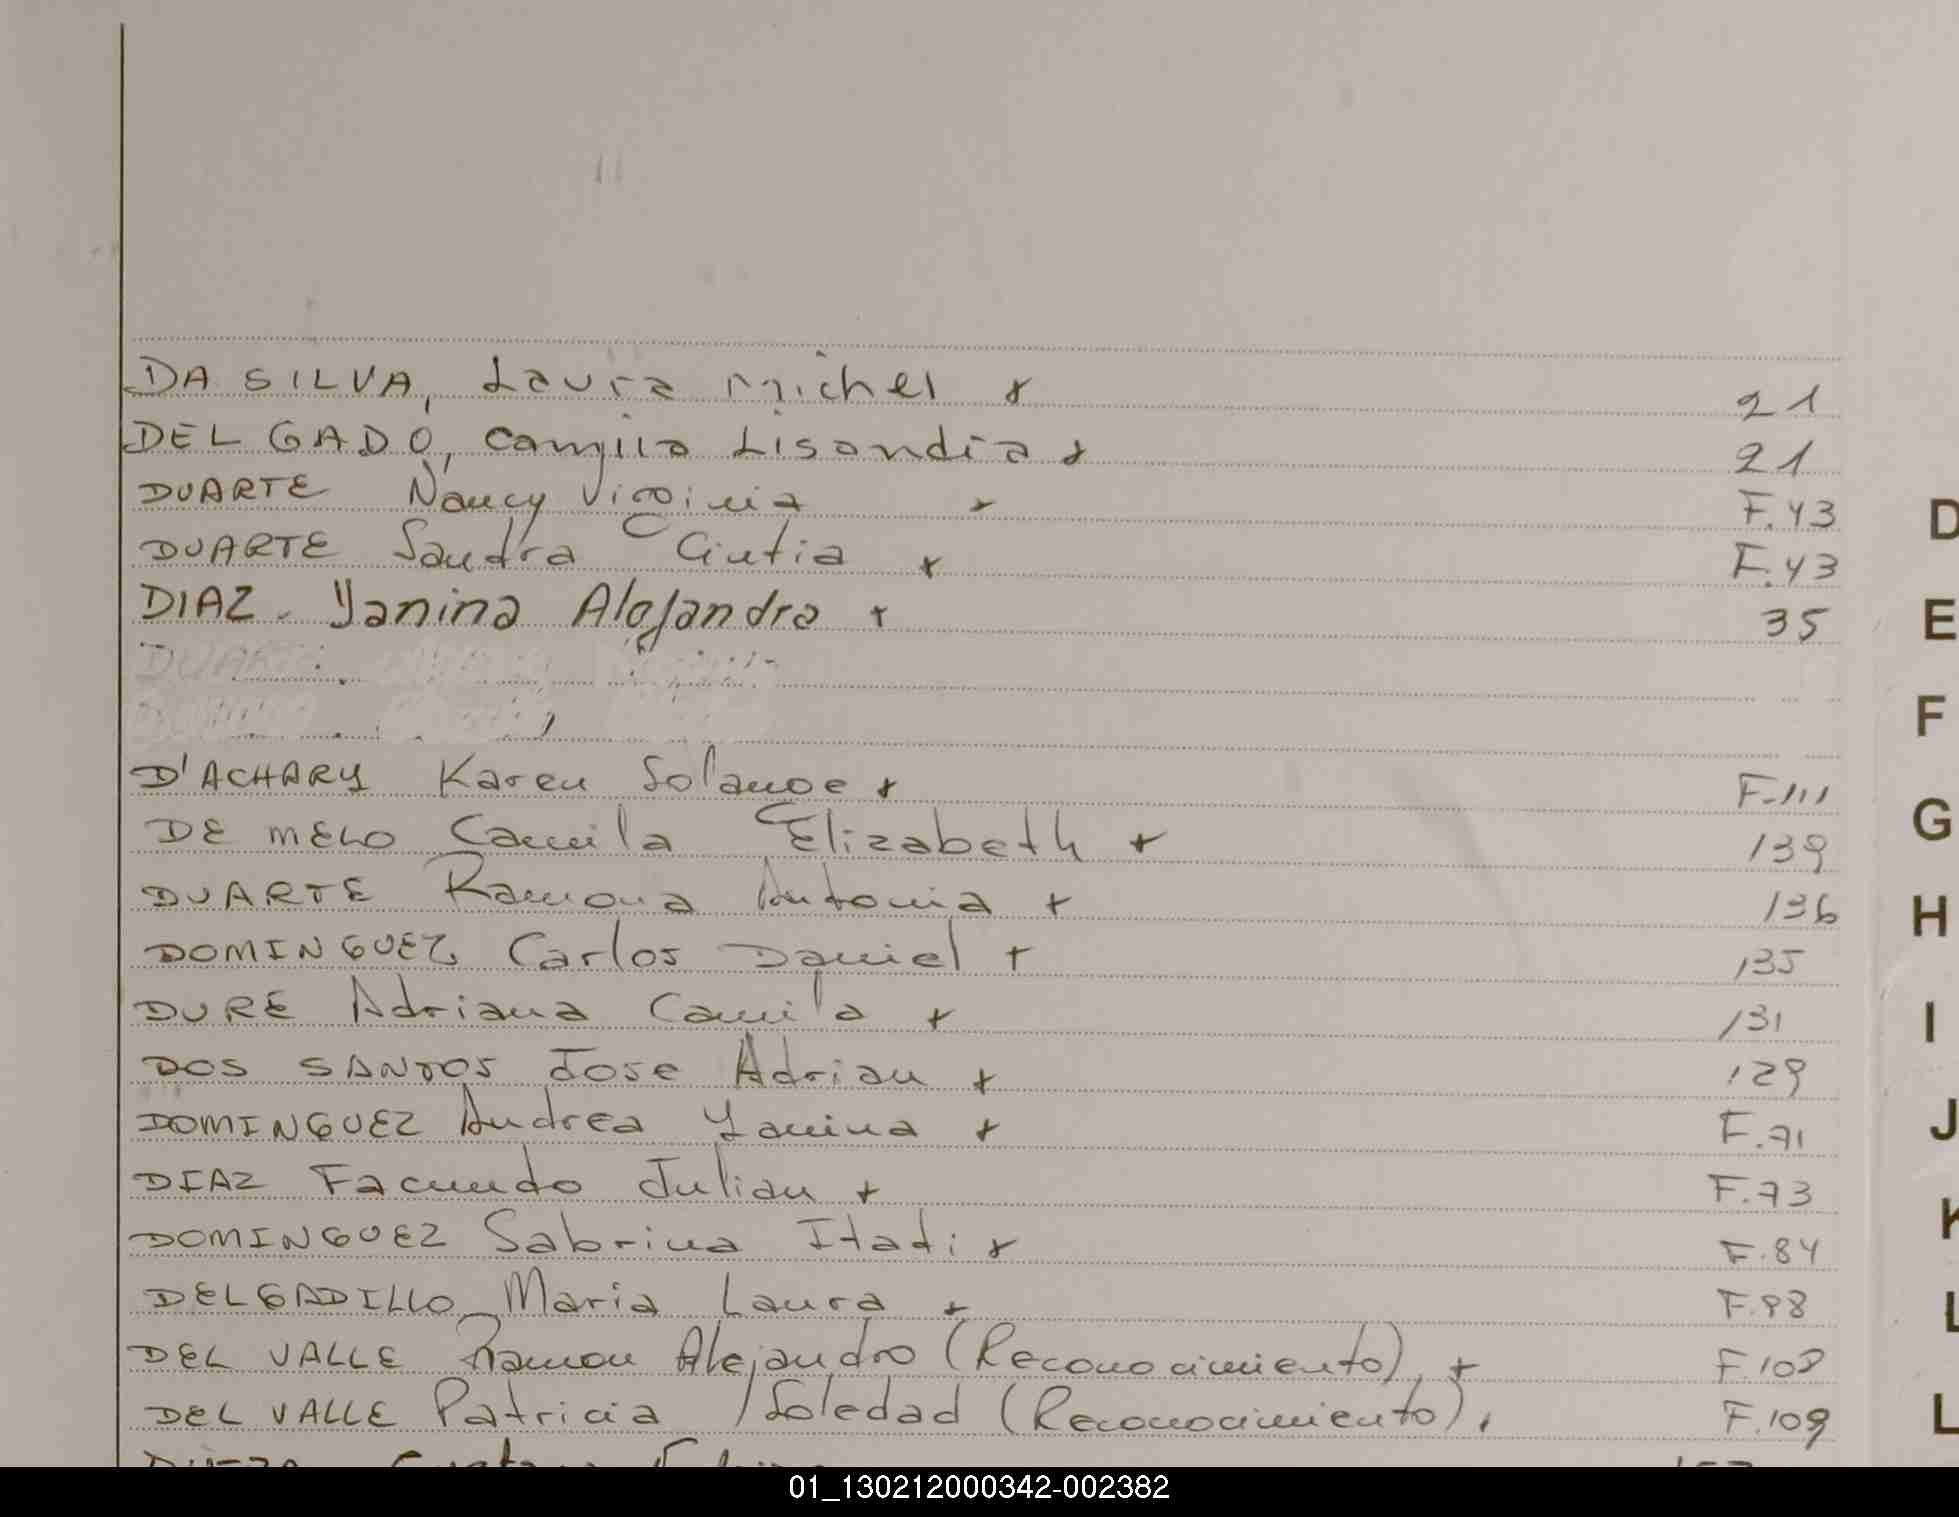 DA SILVA, Laura Michel + 21
DELGADO, Camila Lisandra + 21
DUARTE Nancy Virginia + F.43
DUARTE Sandra Cintia + F.43
DIAZ. Yanina Alejandra + 35
DUARTE
D'ACHARY Karen Solange + F.111
DE MELO Camila Elizabeth + 139
DUARTE Ramona Antonia + 136
DOMINGUEZ Carlos Daniel + 135
DURÉ Adriana Camila + 131
DOS SANTOS Jose Adrian + 129
DOMINGUEZ Andrea Yanina + F.71
DIAZ Facundo Julian + F.73
DOMINGUEZ Sabrina Itati + F.84
DELGADILLO Maria Laura + F.98
DEL VALLE Ramon Alejandro (Reconocimiento) + F.108
DEL VALLE Patricia Soledad (Reconocimiento), F.109
D
E
F
G
H
I
J
K
L
01_130212000342-002382